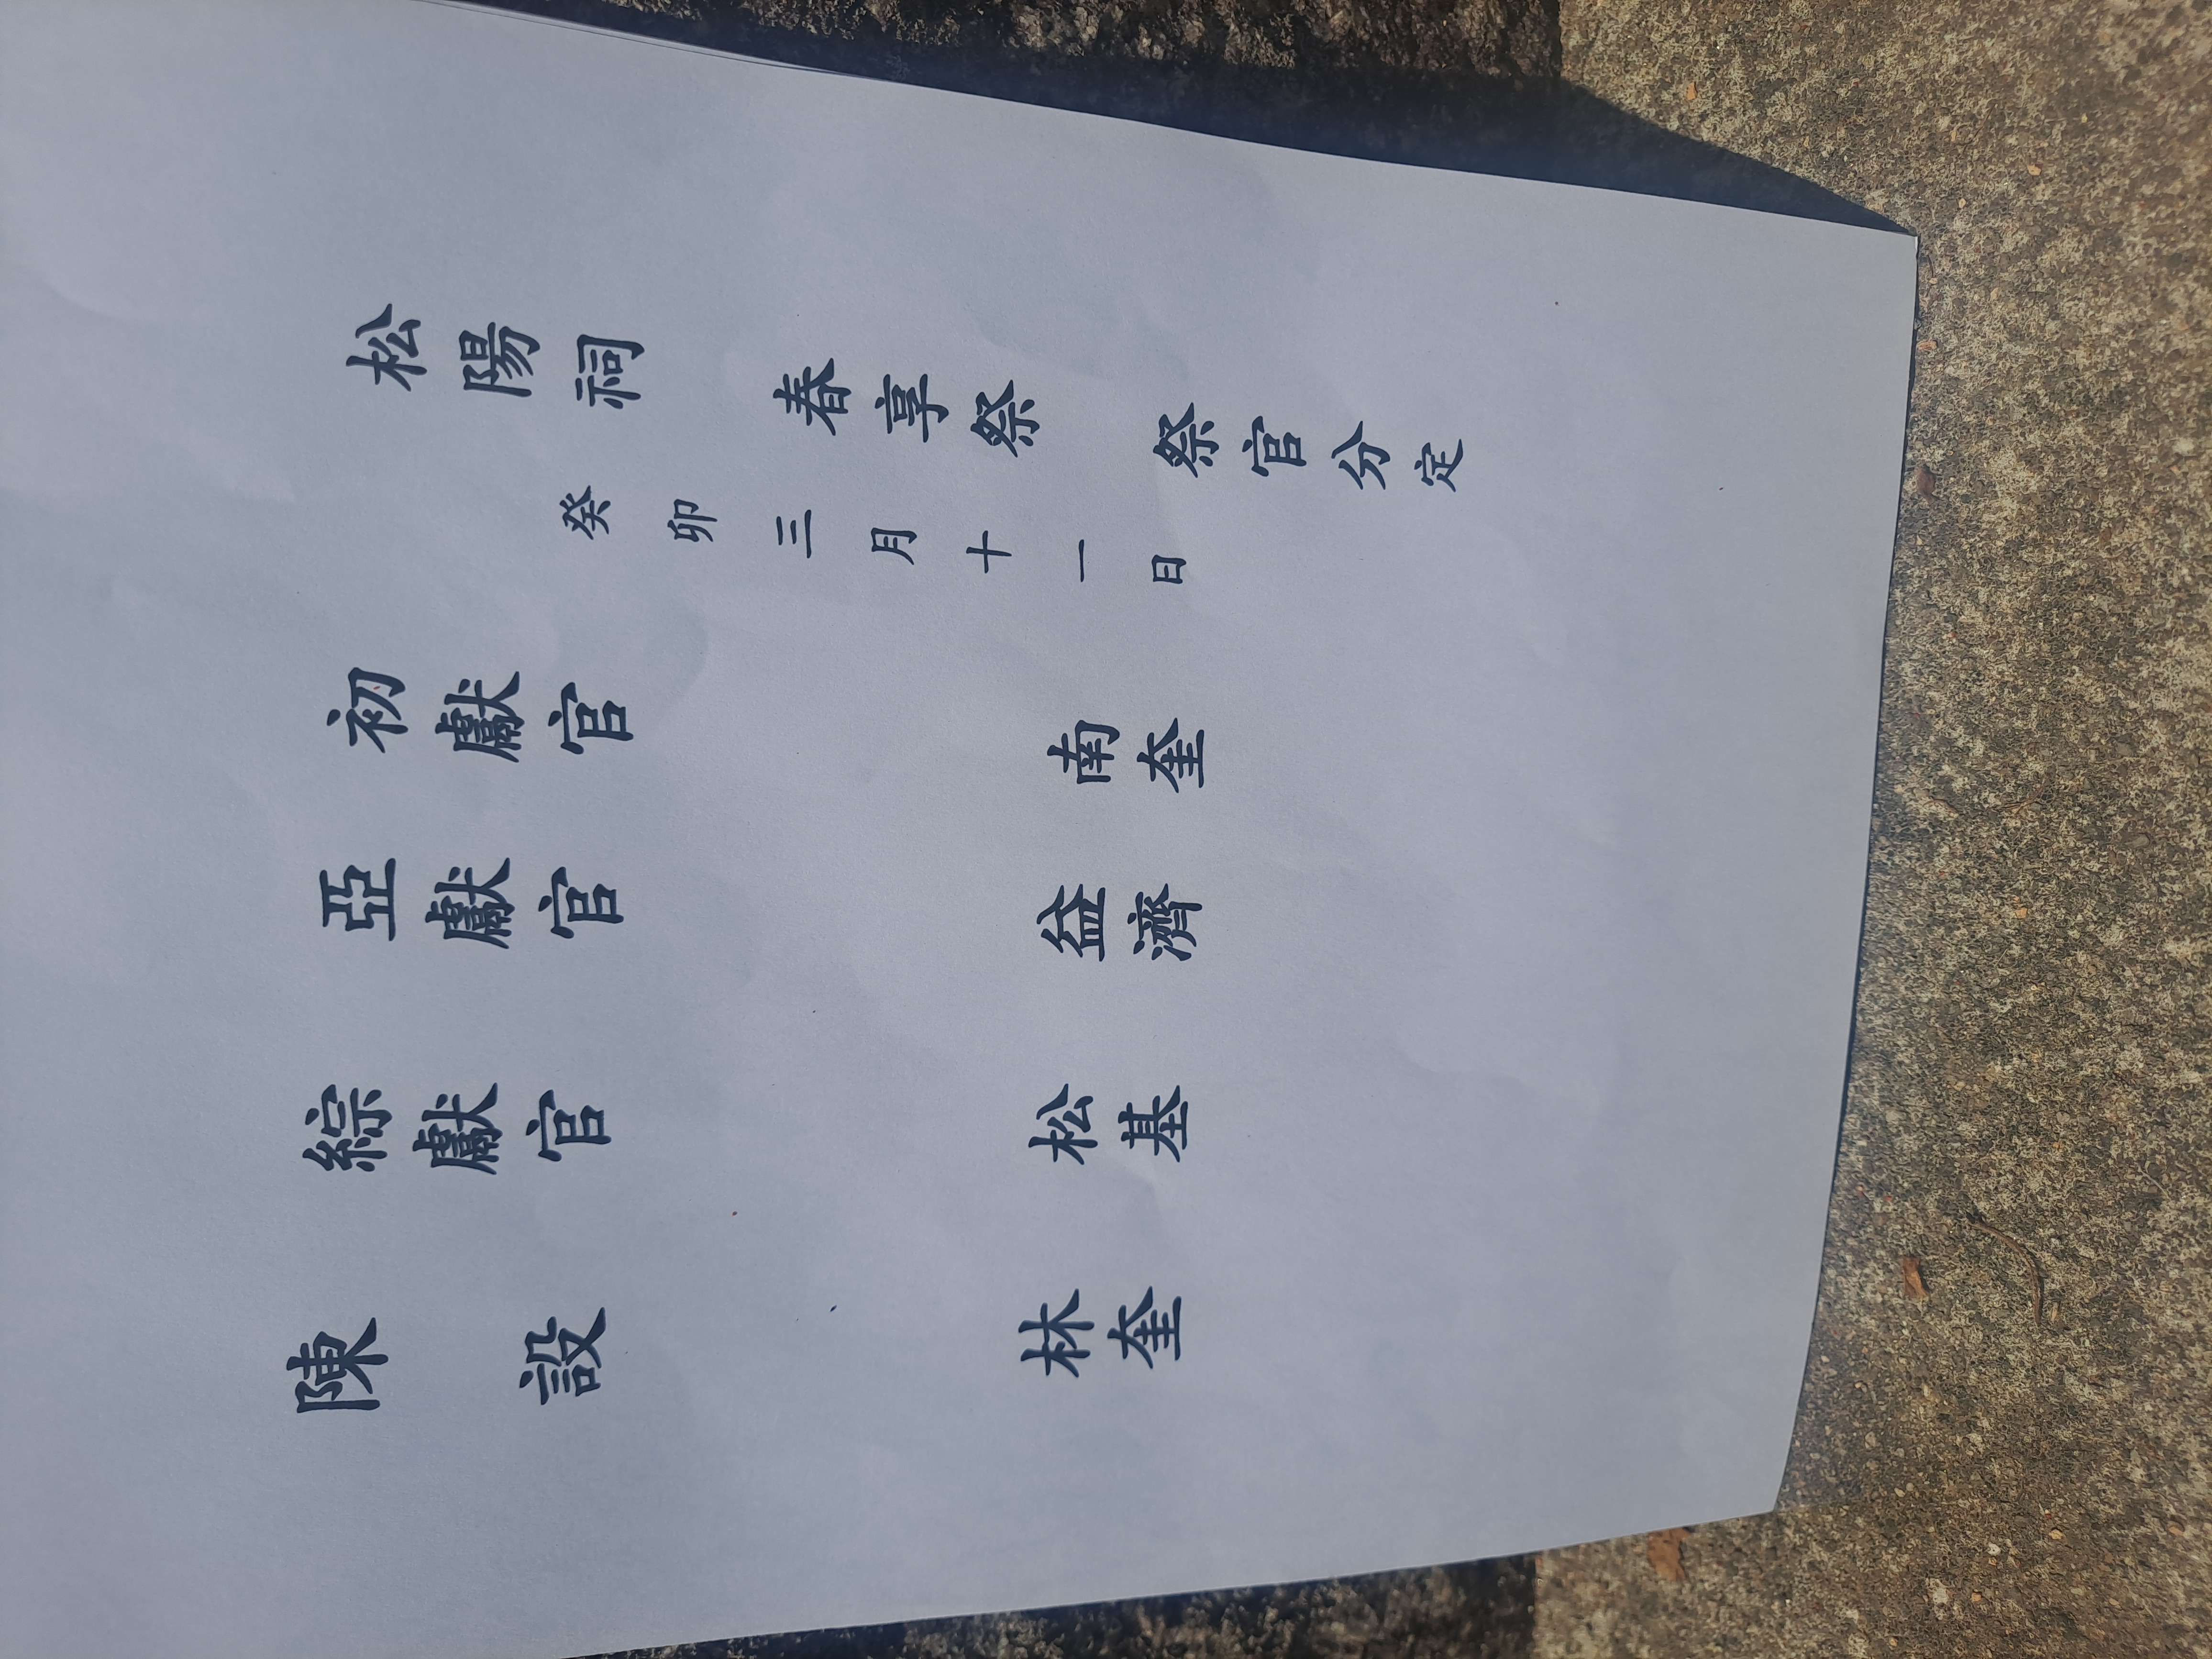 松陽祠 春享祭 祭官分定
癸卯三月十一日
初獻官 南奎
亞獻官 益濟
綜獻官 松基
陳設 林奎